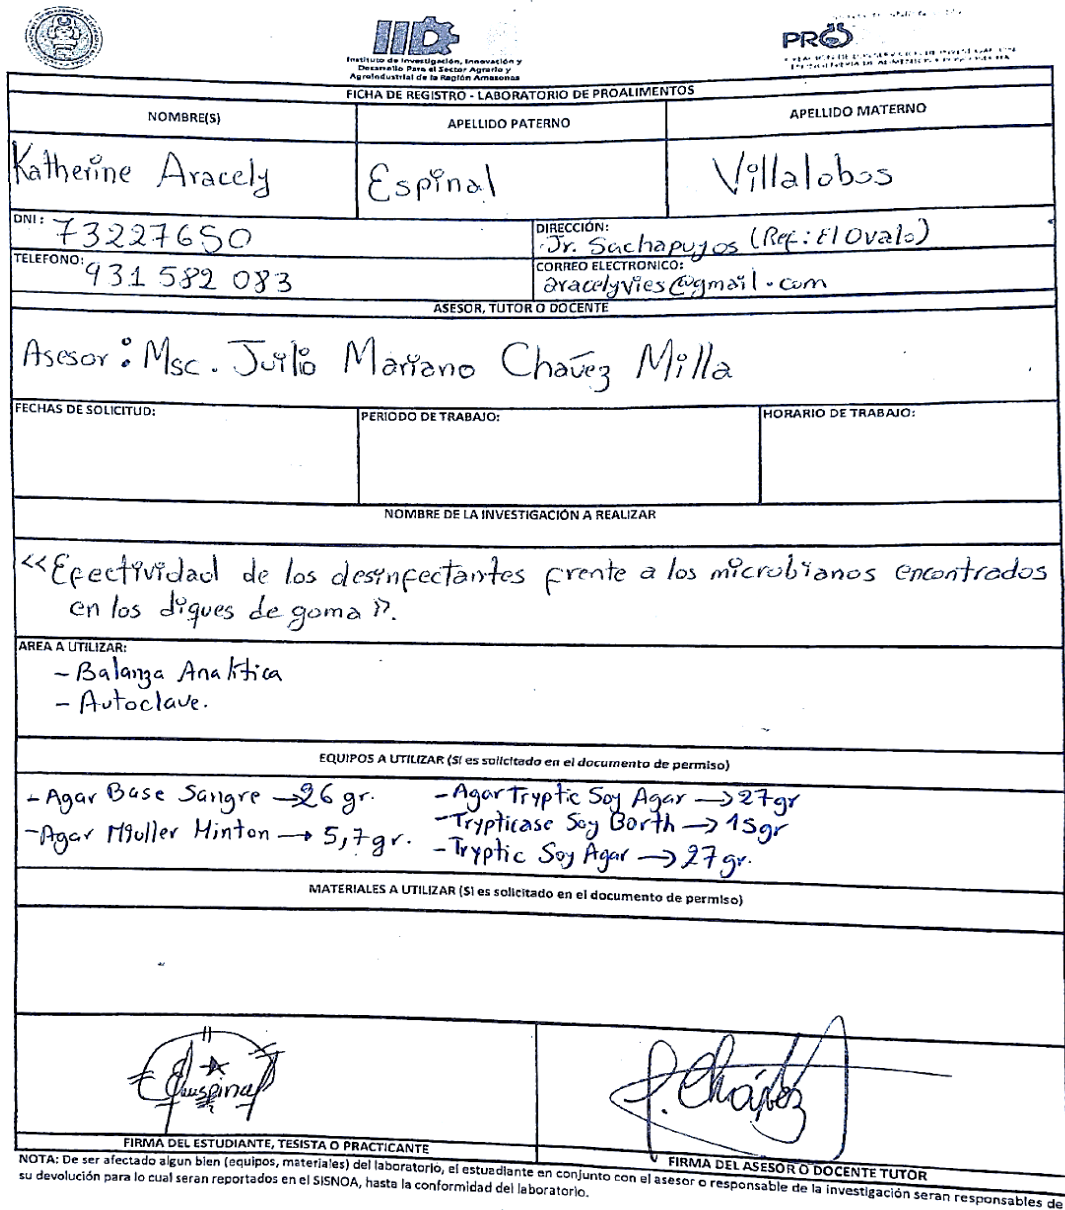 IID
Instituto de Investigación, Innovación y
Desarrollo Para el Sector Agrario y
Agroindustrial de la Región Amazonas
PRO
FICHA DE REGISTRO - LABORATORIO DE PROALIMENTOS
NOMBRE(S) APELLIDO PATERNO APELLIDO MATERNO
Katherine Aracely Espinal Villalobos
DNI: 73227650 DIRECCIÓN: Jr. Sachapuyos (Ref: El Ovalo)
TELEFONO: 931 582 083 CORREO ELECTRONICO: aracelyvies@gmail.com
ASESOR, TUTOR O DOCENTE
Asesor: Msc. Julio Mariano Chávez Milla
FECHAS DE SOLICITUD: PERIODO DE TRABAJO: HORARIO DE TRABAJO:
NOMBRE DE LA INVESTIGACIÓN A REALIZAR
<<Efectividad de los desinfectantes frente a los microbianos encontrados
en los diques de goma>>.
AREA A UTILIZAR:
- Balanza Analítica
- Autoclave.
EQUIPOS A UTILIZAR (SI es solicitado en el documento de permiso)
- Agar Base Sangre → 26 gr. - Agar Tryptic Soy Agar → 27gr
- Agar Miuller Hinton → 5,7gr. - Trypticase Soy Borth → 15gr
- Tryptic Soy Agar → 27 gr.
MATERIALES A UTILIZAR (SI es solicitado en el documento de permiso)
J. Chávez
FIRMA DEL ESTUDIANTE, TESISTA O PRACTICANTE FIRMA DEL ASESOR O DOCENTE TUTOR
NOTA: De ser afectado algun bien (equipos, materiales) del laboratorio, el estuadiante en conjunto con el asesor o responsable de la investigación seran responsables de
su devolución para lo cual seran reportados en el SISNOA, hasta la conformidad del laboratorio.